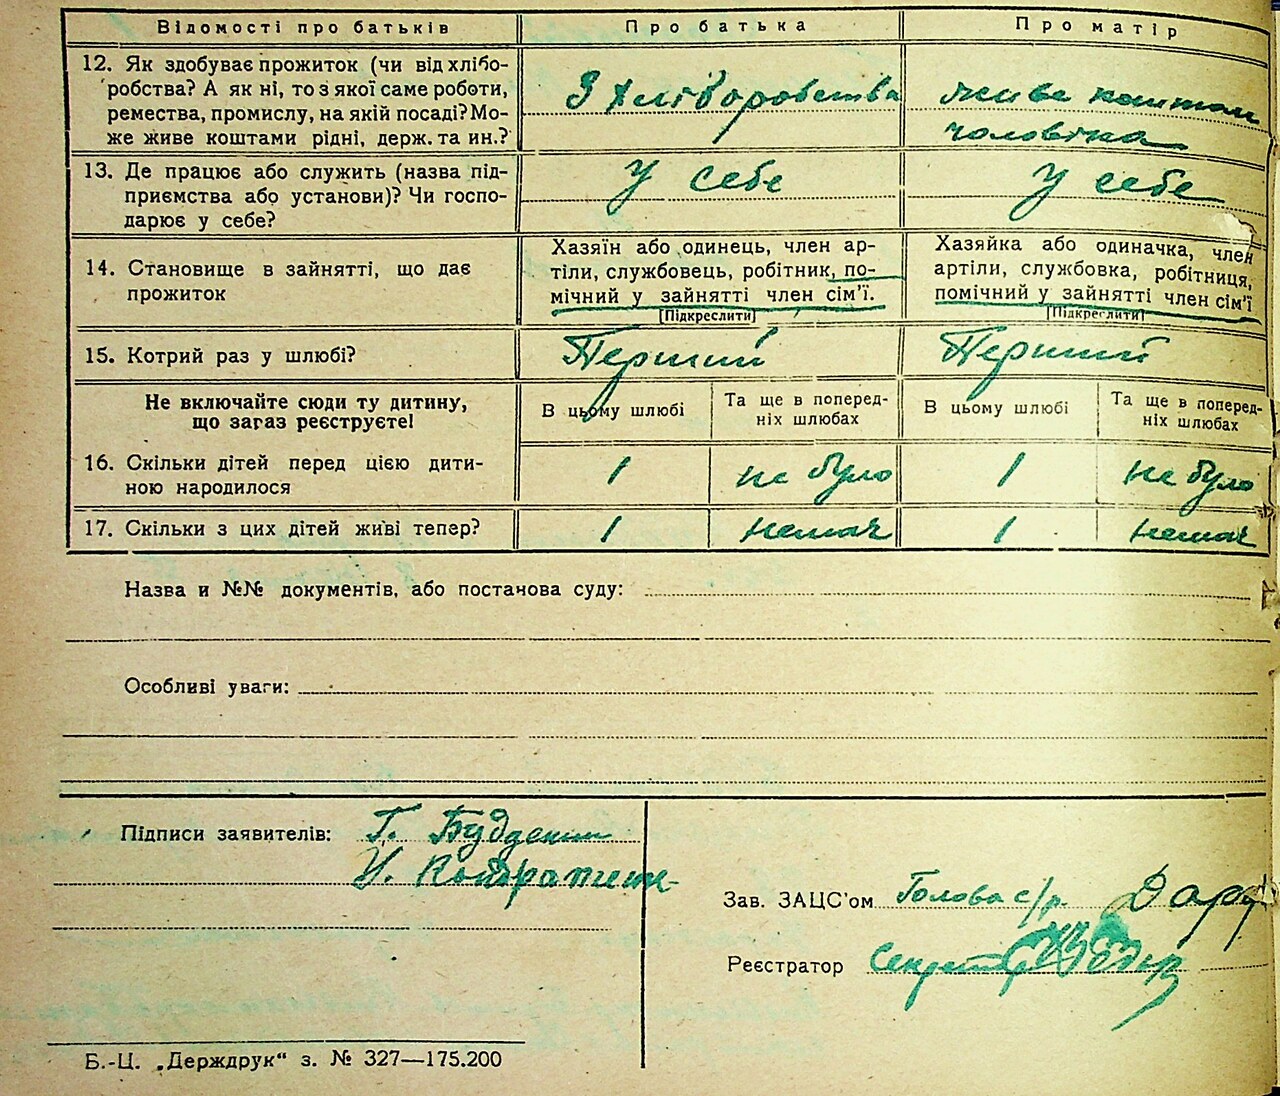 Відомості про батьків
Про батька
Про матір
12. Як здобуває прожиток (чи від хлібо-
робства? А як ні, то з якої саме роботи,
ремества, промислу, на якій посаді? Мо-
же живе коштами рідні, держ. та ин.?
З хліборобства
живе коштом
чоловіка
13. Де працює або служить (назва під-
приємства або установи)? Чи госпо-
дарює у себе?
У себе
У себе
14. Становище в зайнятті, що дає
прожиток
Хазяїн або одинець, член ар-
тіли, службовець, робітник, по-
мічний у зайнятті член сім'ї.
[Підкреслити]
Хазяйка або одиначка, член
артіли, службовка, робітниця,
помічний у зайнятті член сім'ї
[Підкреслити]
15. Котрий раз у шлюбі?
Перший
Перший
Не включайте сюди ту дитину,
що зараз реєструєте!
В цьому шлюбі
Та ще в поперед-
ніх шлюбах
В цьому шлюбі
Та ще в поперед-
ніх шлюбах
16. Скільки дітей перед цією дити-
ною народилося
1
не було
1
не було
17. Скільки з цих дітей живі тепер?
1
немає
1
немає
Назва и №№ документів, або постанова суду:
Особливі уваги:
Підписи заявителів: Г.
И.
Зав. ЗАЦС'ом Голова с/р.
Реєстратор Секретар
Б.-Ц. „Держдрук“ з. № 327—175.200